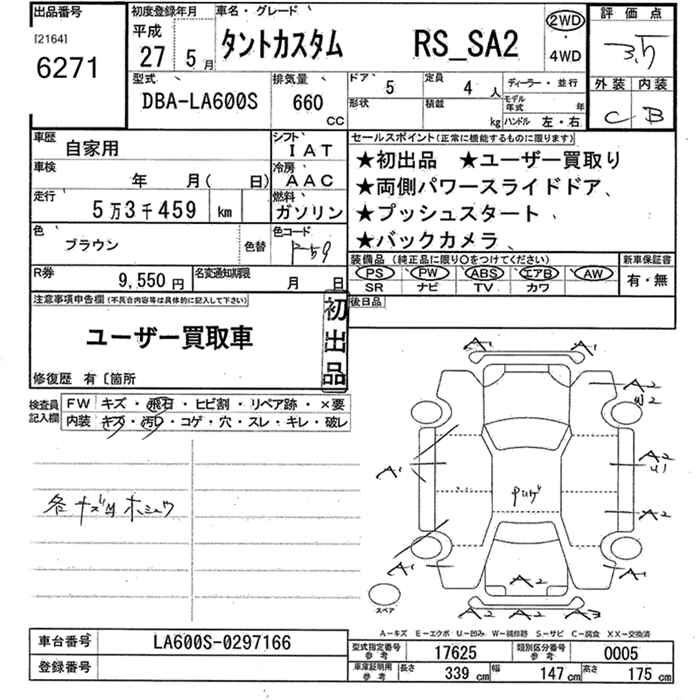 出品番号 初度登録年月 車名・グレード 評価点
[2164] 6271 平成 27 5月 タントカスタム RS_SA2 2WD・4WD 3.5
型式 排気量 ドア 5 定員 4 人 ディーラー・並行 外装 内装
DBA-LA600S 660 CC 形状 積載 kg モデル年式 年 ハンドル 左・右 C B
車歴 自家用 シフト IAT セールスポイント(正常に機能するものに限ります)
車検 年 月( 日) 冷房 AAC ★初出品 ★ユーザー買取り
走行 5万3千459 km 燃料 ガソリン ★両側パワースライドドア、
★プッシュスタート
色 ブラウン 色替 色コード ★バックカメラ
装備品 (純正品に限り○をつけてください) 新車保証書
R券 9,550円 名変通知期限 月 日 PS PW ABS エアB AW 有・無
SR ナビ TV カワ
注意事項申告欄(不具合内容等は具体的に記入して下さい) 初出品 後日品
ユーザー買取車
修復歴 有〔箇所
検査員記入欄 FW キズ・飛石・ヒビ割・リペア跡・×要
内装 キズ・汚れ・コゲ・穴・スレ・キレ・破レ
A1 A1
A2
A1 A2
A2
A2
A2 A2 A3
スペア
A-キズ E-エクボ U-凹み W-補修跡 S-サビ C-腐食 XX-交換済
車台番号 LA600S-0297166 型式指定番号 参考 17625 類別区分番号 参考 0005
登録番号 車庫証明用 参考 長さ 339 cm 幅 147 cm 高さ 175 cm